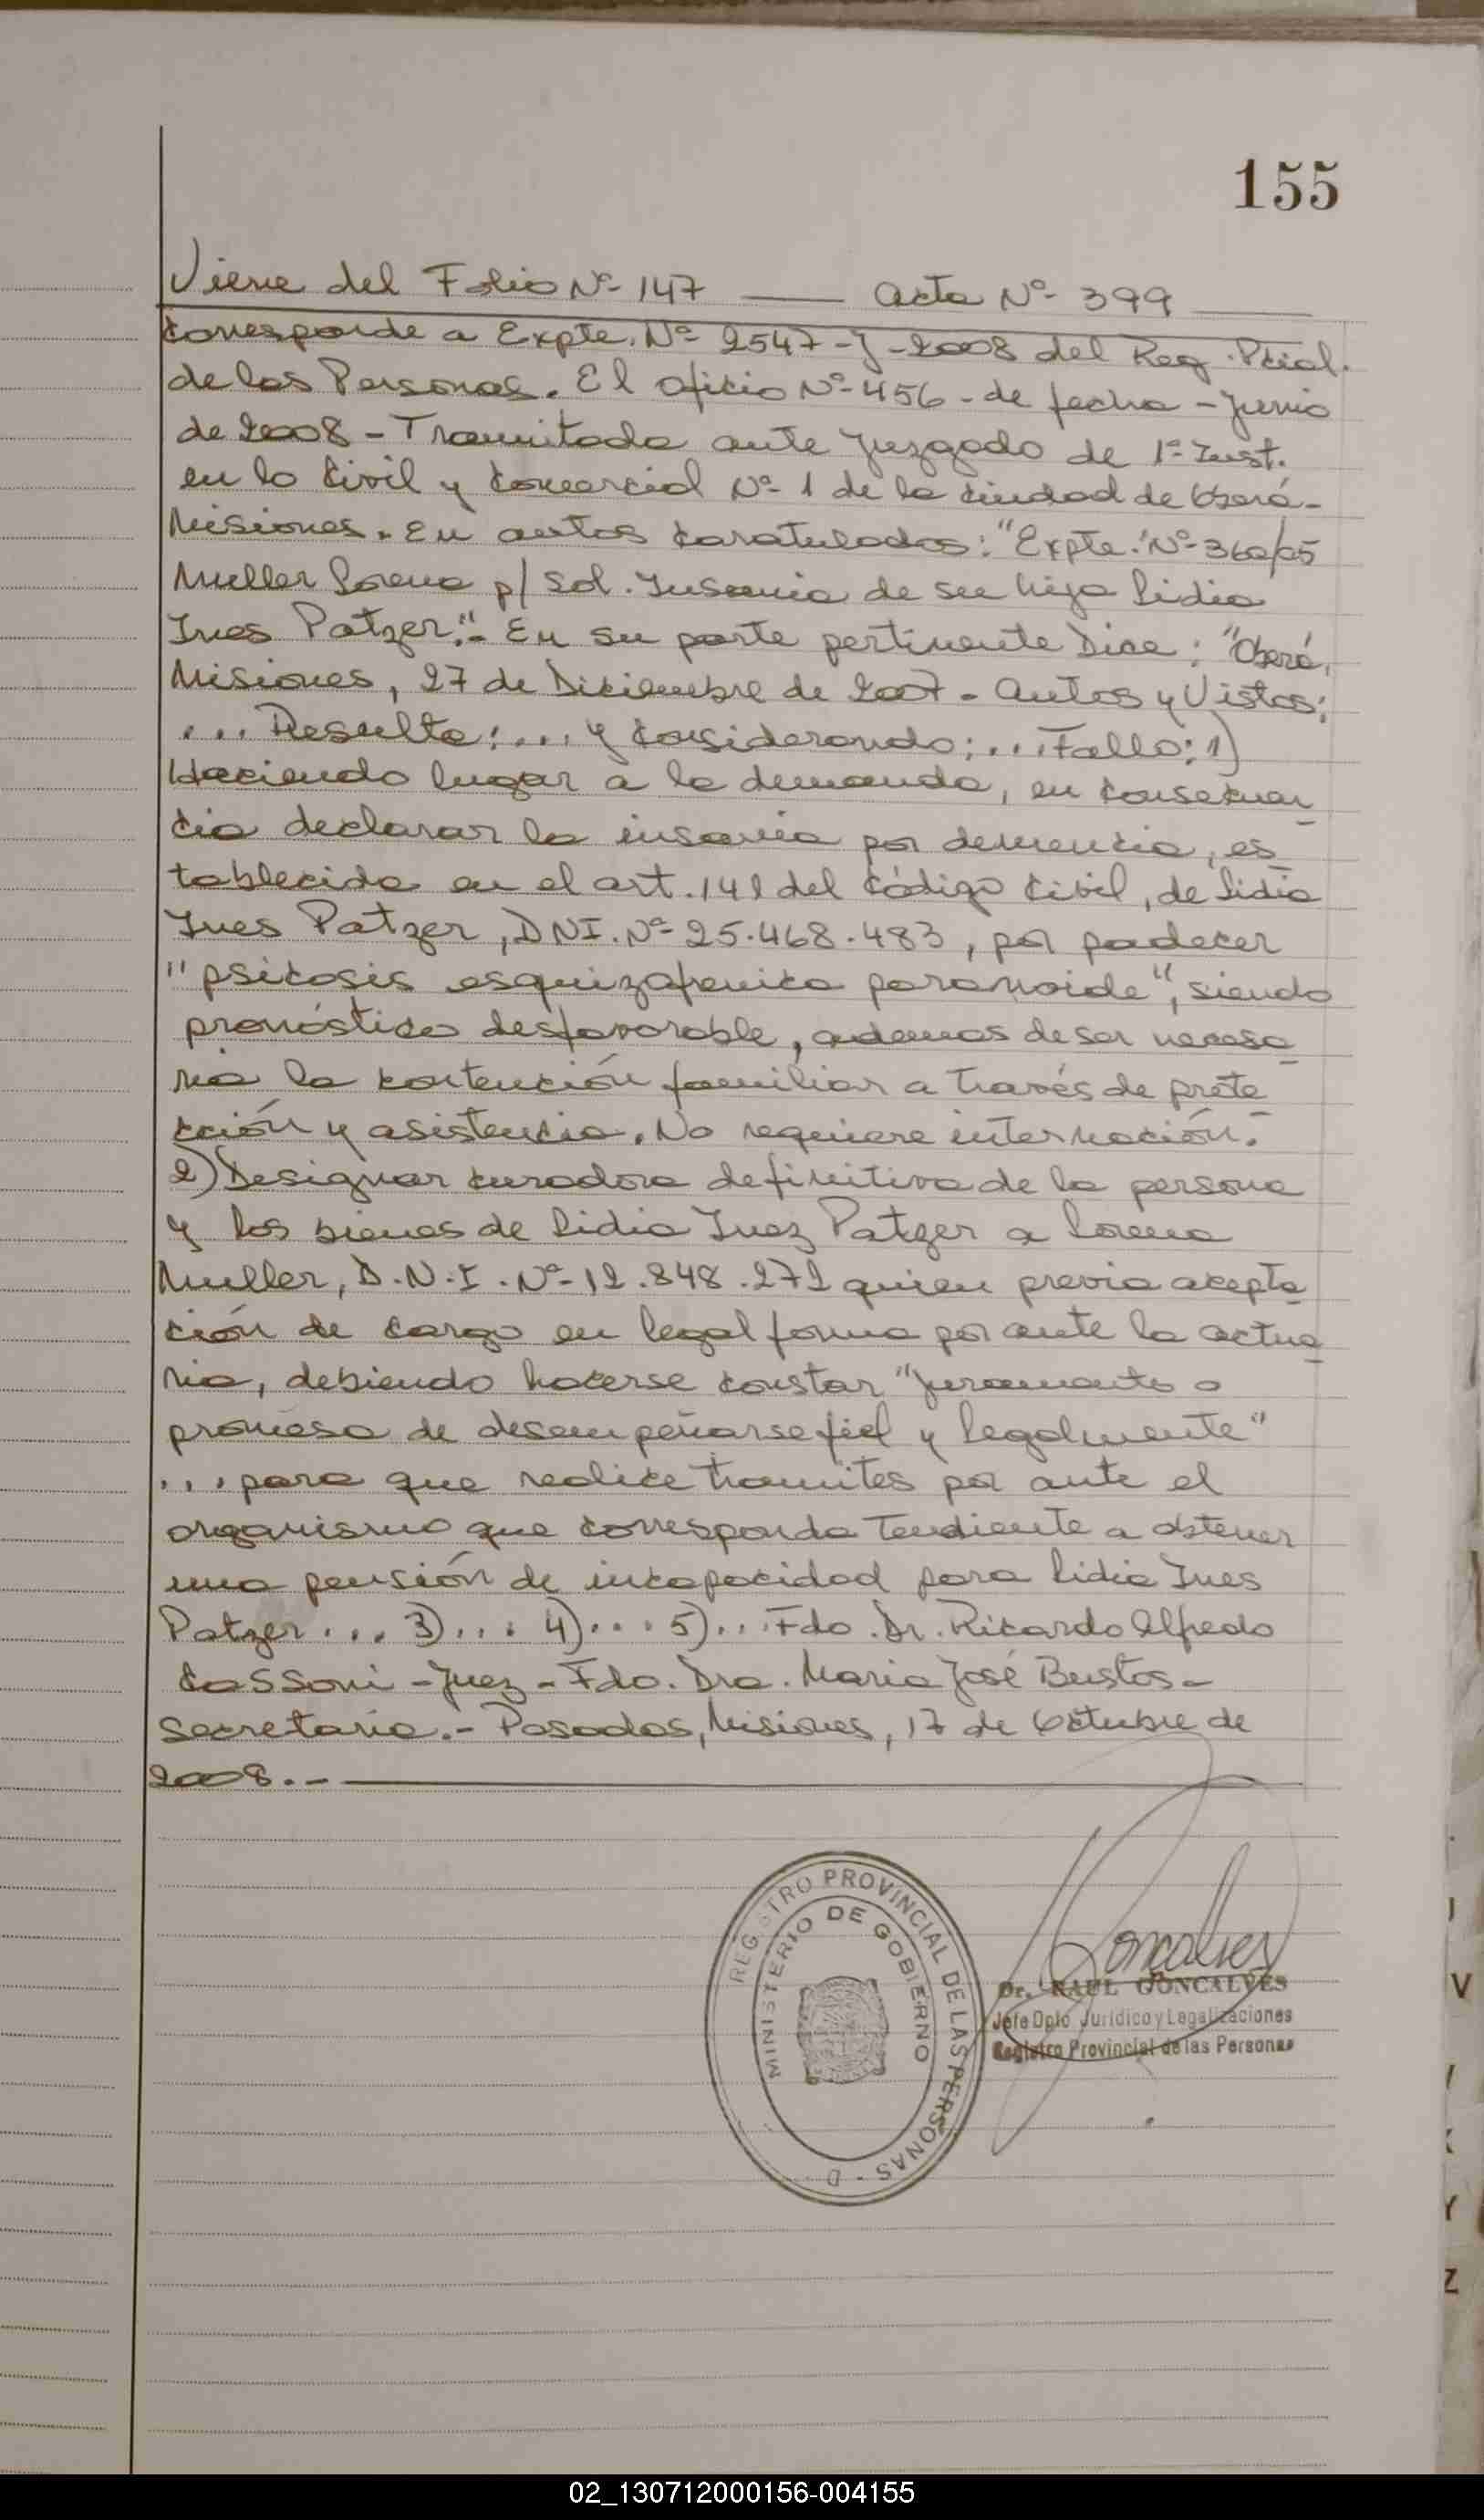 155
Viene del Folio Nº 147 — Acta Nº 399 —
Corresponde a Expte. Nº 2547-J-2008 del Reg. Pcial.
de las Personas. El oficio Nº 456 - de fecha - Junio
de 2008 - Tramitado ante Juzgado de 1º Inst.
en lo Civil y Comercial Nº 1 de la ciudad de Oberá -
Misiones. En autos caratulados: "Expte. Nº 360/05
Muller Lorena p/ Sol. Insania de su hija Lidia
Ines Patzer." - En su parte pertinente Dice: "Oberá,
Misiones, 27 de Diciembre de 2007 - Autos y Vistos:
... Resulta: ... y Considerando: ... Fallo: 1)
Haciendo lugar a la demanda, en consecuen
cia declarar la insania por demencia, es
tablecida en el art. 141 del Código Civil, de Lidia
Ines Patzer, DNI. Nº 25.468.483, por padecer
"psicosis esquizofrenica paranoide", siendo
pronóstico desfavorable, ademas de ser necesa
ria la contención familiar a través de prote
cción y asistencia. No requiere internación.
2) Designar curadora definitiva de la persona
y los bienes de Lidia Inez Patzer a Lorena
Muller, D.N.I. Nº 12.848.272 quien previa acepta
ción de cargo en legal forma por ante la actua
ria, debiendo hacerse constar "juramento o
promesa de desempeñarse fiel y legalmente"
... para que realice tramites por ante el
organismo que corresponda tendiente a obtener
una pensión de incapacidad para Lidia Ines
Patzer ... 3) ... 4) ... 5) ... Fdo. Dr. Ricardo Alfredo
Cassoni - Juez - Fdo. Dra. Maria José Bustos -
Secretaria. - Posadas, Misiones, 17 de Octubre de
2008. -
REGISTRO PROVINCIAL DE LAS PERSONAS - D
MINISTERIO DE GOBIERNO
Goncalves
Dr. RAUL GONCALVES
Jefe Dpto. Jurídico y Legalizaciones
Registro Provincial de las Personas
V
Y
Z
02_130712000156-004155